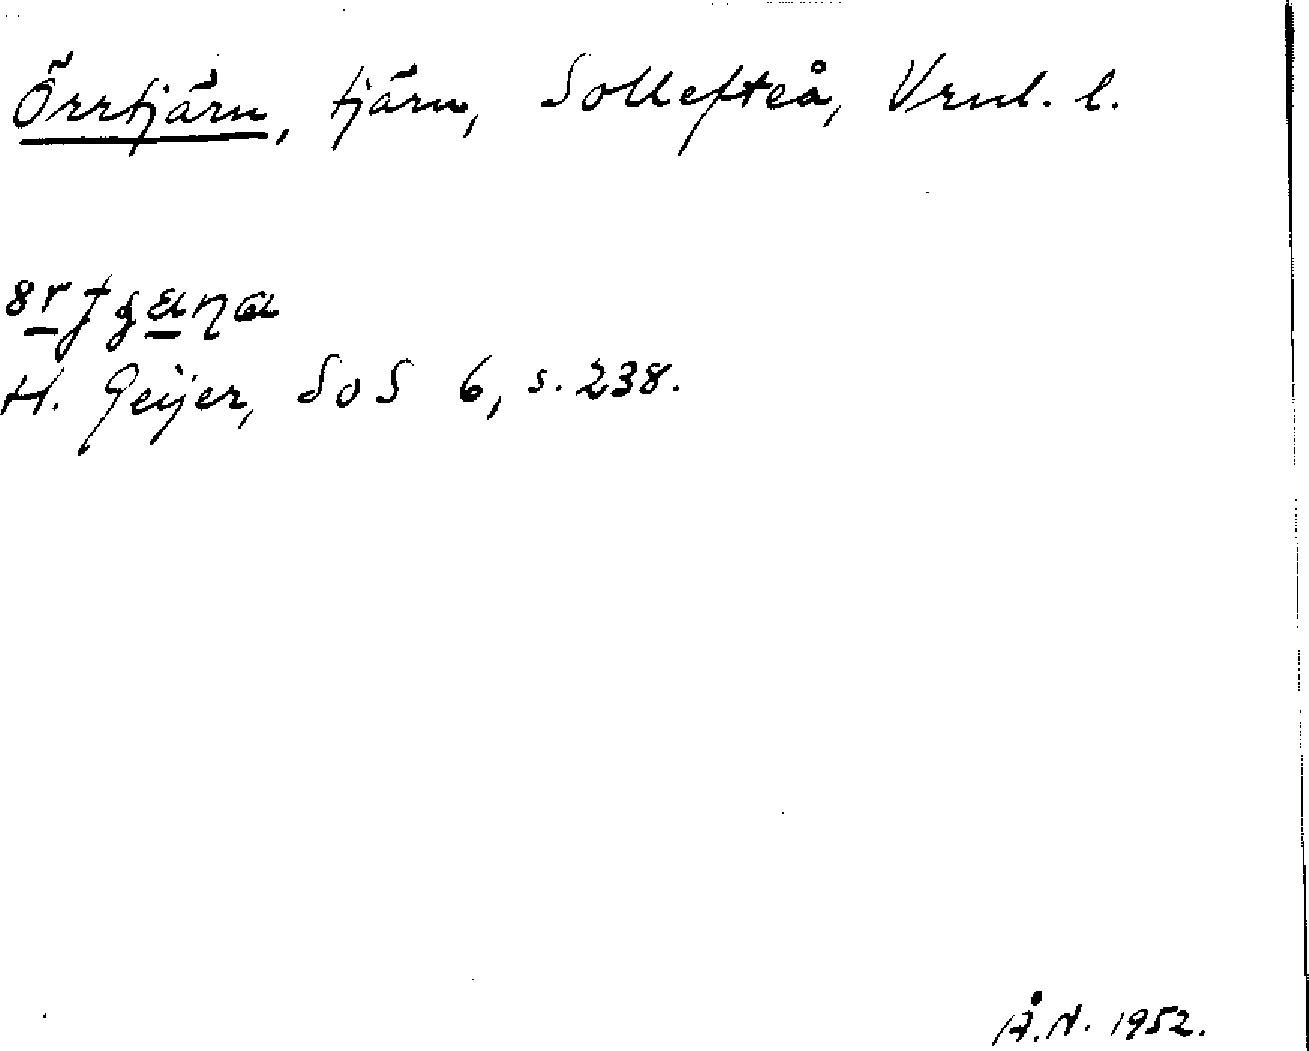 Örrtjärn, tjärn, Sollefteå, Vrml. l.
H. Geijer, SoS 6, s. 238.
Å.N. 1952.